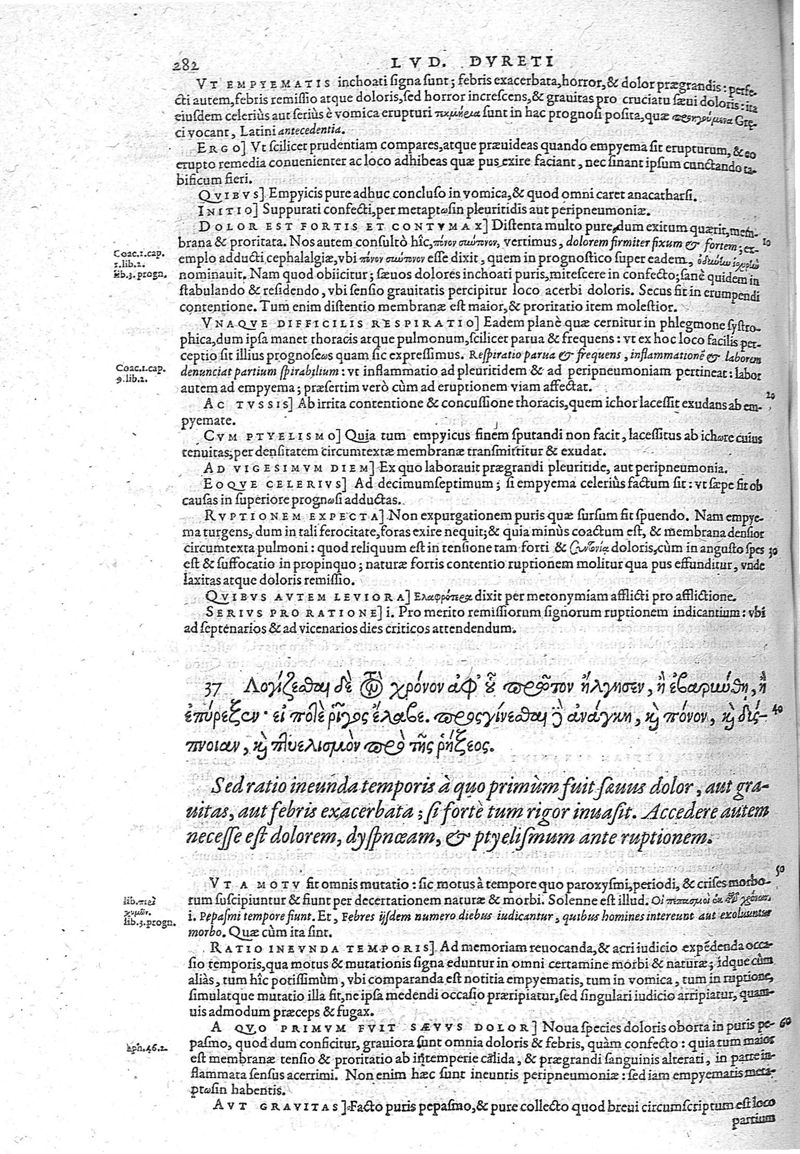 282 LVD. DVRETI
VT EMPYEMATIS inchoati signa sunt; febris exacerbata, horror, & dolor prægrandis: perfe-
cti autem, febris remissio atque doloris, sed horror increscens, & grauitas pro cruciatu sæui doloris: ita
eiusdem celerius aut serius è vomica erupturi τεκμήρια sunt in hac prognosi posita, quæ προηγούμενα Græ-
ci vocant, Latini antecedentia.
ERGO] Vt scilicet prudentiam compares, atque præuideas quando empyema sit erupturum, & eo
erupto remedia conuenienter ac loco adhibeas quæ pus exire faciant, nec sinant ipsum cunctando ta-
bificum fieri.
QVIBVS] Empyicis pure adhuc concluso in vomica, & quod omni caret anacatharsi.
INITIO] Suppurati confecti, per metaptωsin pleuritidis aut peripneumoniæ.
DOLOR EST FORTIS ET CONTVMAX] Distenta multo pure, dum exitum quærit, mem-
brana & proritata. Nos autem consultò hîc, πόνον σύντονον, vertimus, dolorem firmiter fixum & fortem; ex-
10
emplo adducti cephalalgiæ, vbi πόνον σύντονον esse dixit, quem in prognostico super eadem,
Coac.1.cap.
1.lib.2.
lib.3. progn.
nominauit. Nam quod obiicitur; sæuos dolores inchoati puris, mitescere in confecto; sanè quidem in
stabulando & residendo, vbi sensio grauitatis percipitur loco acerbi doloris. Secus fit in erumpendi
contentione. Tum enim distentio membranæ est maior, & proritatio item molestior.
VNAQVE DIFFICILIS RESPIRATIO] Eadem planè quæ cernitur in phlegmone systro-
phica, dum ipsa manet thoracis atque pulmonum, scilicet parua & frequens: vt ex hoc loco facilis per-
ceptio sit illius prognoseωs quam sic expressimus. Respiratio parua & frequens, inflammationē & laborem
denunciat partium spirabilium: vt inflammatio ad pleuritidem & ad peripneumoniam pertineat: labor
Coac.1.cap.
9.lib.2.
autem ad empyema; præsertim verò cùm ad eruptionem viam affectat.
20
AC TVSSIS] Ab irrita contentione & concussione thoracis, quem ichor lacessit exudans ab em-
pyemate.
CVM PTYELISMO] Quia tum empyicus finem sputandi non facit, lacessitus ab ichωre cuius
tenuitas; per densitatem circumtextæ membranæ transmittitur & exudat.
AD VIGESIMVM DIEM] Ex quo laborauit prægrandi pleuritide, aut peripneumonia.
EOQVE CELERIVS] Ad decimumseptimum; si empyema celerius factum sit: vt sæpe fit ob
causas in superiore prognωsi adductas.
RVPTIONEM EXPECTA] Non expurgationem puris quæ sursum fit spuendo. Nam empye-
ma turgens, dum in tali ferocitate, foras exire nequit; & quia minus coactum est, & membrana densior
circumtexta pulmoni: quod reliquum est in tensione tam forti & συντονία doloris, cùm in angusto spes
30
est & suffocatio in propinquo; naturæ fortis contentio ruptionem molitur qua pus effunditur, vnde
laxitas atque doloris remissio.
QVIBVS AVTEM LEVIORA] Ελαφρότερα dixit per metonymiam afflicti pro afflictione.
SERIVS PRO RATIONE] i. Pro merito remissiorum signorum ruptionem indicantium: vbi
ad septenarios & ad vicenarios dies criticos attendendum.
37 Λογίζεσθαι δὲ τὸν χρόνον ἀφ᾽ οὗ πρῶτον ἤλγησεν, ἢ ἐβαρύνθη, ἢ
ἐπύρεξεν· εἰ ποτε ῥῖγος ἔλαβε. προςγίνεσθαι δ᾽ ἀνάγκη, καὶ πόνον, καὶ δύς-
40
πνοιαν, καὶ πτυελισμὸν πρὸ τῆς ῥήξεος.
Sed ratio ineunda temporis à quo primùm fuit sæuus dolor, aut gra-
uitas, aut febris exacerbata; si fortè tum rigor inuasit. Accedere autem
necesse est dolorem, dyspnœam, & ptyelismum ante ruptionem.
50
VT A MOTV fit omnis mutatio: sic motus à tempore quo paroxysmi, periodi, & crises morbo-
rum suscipiuntur & fiunt per decertationem naturæ & morbi. Solenne est illud. Οἱ πεπασμοὶ ἐκ τοῦ χρόνου
lib. περὶ
χυμῶν.
lib.3. progn.
i. Pepasmi tempore fiunt. Et, Febres ijsdem numero diebus iudicantur, quibus homines intereunt aut exoluuntur
morbo. Quæ cùm ita sint.
RATIO INEVNDA TEMPORIS] Ad memoriam reuocanda, & acri iudicio expēdenda occa-
sio temporis, qua motus & mutationis signa eduntur in omni certamine morbi & naturæ; idque cùm
aliàs, tum hîc potissimùm, vbi comparanda est notitia empyematis, tum in vomica, tum in ruptione,
simulatque mutatio illa fit, ne ipsa medendi occasio præripiatur, sed singulari iudicio arripiatur, quam-
uis admodum præceps & fugax.
A QVO PRIMVM FVIT SÆVVS DOLOR] Noua species doloris oborta in puris pe-
60
pasmo, quod dum conficitur, grauiora sunt omnia doloris & febris, quàm confecto: quia tum maior
aph.46.2.
est membranæ tensio & proritatio ab intemperie calida, & prægrandi sanguinis alterati, in parte in-
flammata sensus acerrimi. Non enim hæc sunt ineuntis peripneumoniæ: sed iam empyematis meta-
ptωsin habentis.
AVT GRAVITAS] Facto puris pepasmo, & pure collecto quod breui circumscriptum est loco
partium